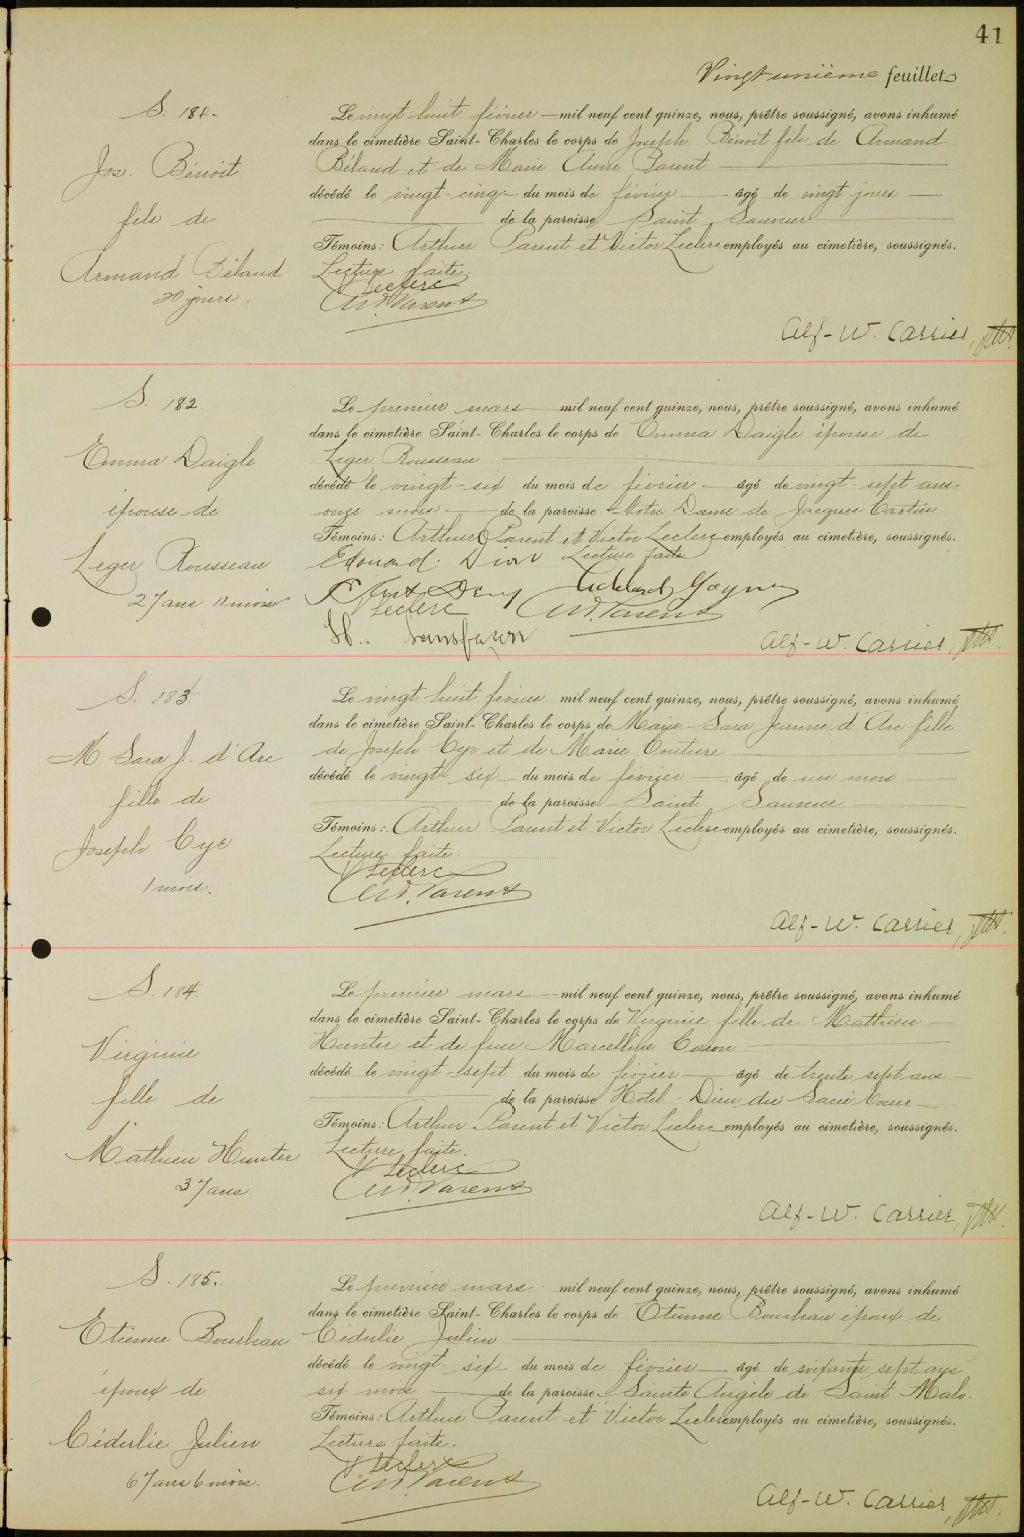 41
Vingt unième feuillet
S. 181.
Jos. Bénoit
fils de
Armand Béland
20 jours.
Le vingt huit février mil neuf cent quinze, nous, prêtre soussigné, avons inhumé
dans le cimetière Saint-Charles le corps de Joseph Bénoit fils de Armand
Béland et de Marie Anne Parent
décédé le vingt-cinq du mois de février âgé de vingt jours
de la paroisse Saint Sauveur
Témoins: Arthur Parent et Victor Leclerc employés au cimetière, soussignés.
Lecture faite.
V Leclerc
Art. Parent
Alf-W. Carrier, ptre.
S. 182
Emma Daigle
épouse de
Leger Rousseau
27 ans 11 mois
Le premier mars mil neuf cent quinze, nous, prêtre soussigné, avons inhumé
dans le cimetière Saint-Charles le corps de Emma Daigle épouse de
Leger Rousseau
décédé le vingt-six du mois de février âgé de vingt-sept ans
onze mois de la paroisse Notre Dame de Jacques Cartier
Témoins: Arthur Parent et Victor Leclerc employés au cimetière, soussignés.
Edouard Dion Lecture faite
V Leclerc Art. Parent
H. Sansfaçon
Alf-W. Carrier, ptre.
S. 183
M Sara J. d'Arc
fille de
Joseph Cyr
1 mois.
Le vingt huit février mil neuf cent quinze, nous, prêtre soussigné, avons inhumé
dans le cimetière Saint-Charles le corps de Marie Sara Jeanne d'Arc fille
de Joseph Cyr et de Marie Couture
décédé le vingt six du mois de février âgé de un mois
de la paroisse Saint Sauveur
Témoins: Arthur Parent et Victor Leclerc employés au cimetière, soussignés.
Lecture faite.
V Leclerc
Art. Parent
Alf-W. Carrier, ptre.
S. 184.
Virginie
fille de
Mathieu Hunter
37 ans.
Le premier mars mil neuf cent quinze, nous, prêtre soussigné, avons inhumé
dans le cimetière Saint-Charles le corps de Virginie fille de Mathieu
Hunter et de feue Marcelline Caron
décédé le vingt-sept du mois de février âgé de trente sept ans
de la paroisse Hotel-Dieu du Sacré-Coeur
Témoins: Arthur Parent et Victor Leclerc employés au cimetière, soussignés.
Lecture faite.
V Leclerc
Art. Parent
Alf-W. Carrier, ptre.
S. 185.
Etienne Bourbeau
époux de
Cédulie Julien
67 ans 6 mois.
Le premier mars mil neuf cent quinze, nous, prêtre soussigné, avons inhumé
dans le cimetière Saint-Charles le corps de Etienne Bourbeau époux de
Cédulie Julien
décédé le vingt-six du mois de février âgé de soixante sept ans
six mois de la paroisse Sainte Angèle de Saint Malo.
Témoins: Arthur Parent et Victor Leclerc employés au cimetière, soussignés.
Lecture faite.
V Leclerc
Art. Parent
Alf-W. Carrier, ptre.